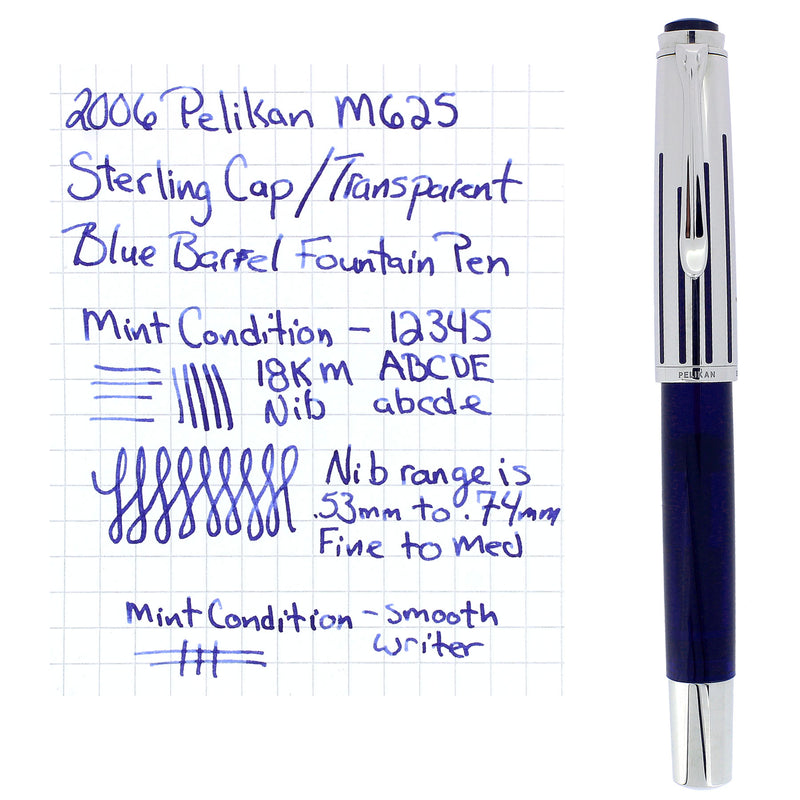 2006 Pelikan M625
Sterling Cap/Transparent
Blue Barrel Fountain Pen
Mint Condition – 12345
18K M ABCDE
Nib abcde
Nib range is
.53mm to .74mm
Fine to Med
Mint Condition – smooth
writer
PELIKAN